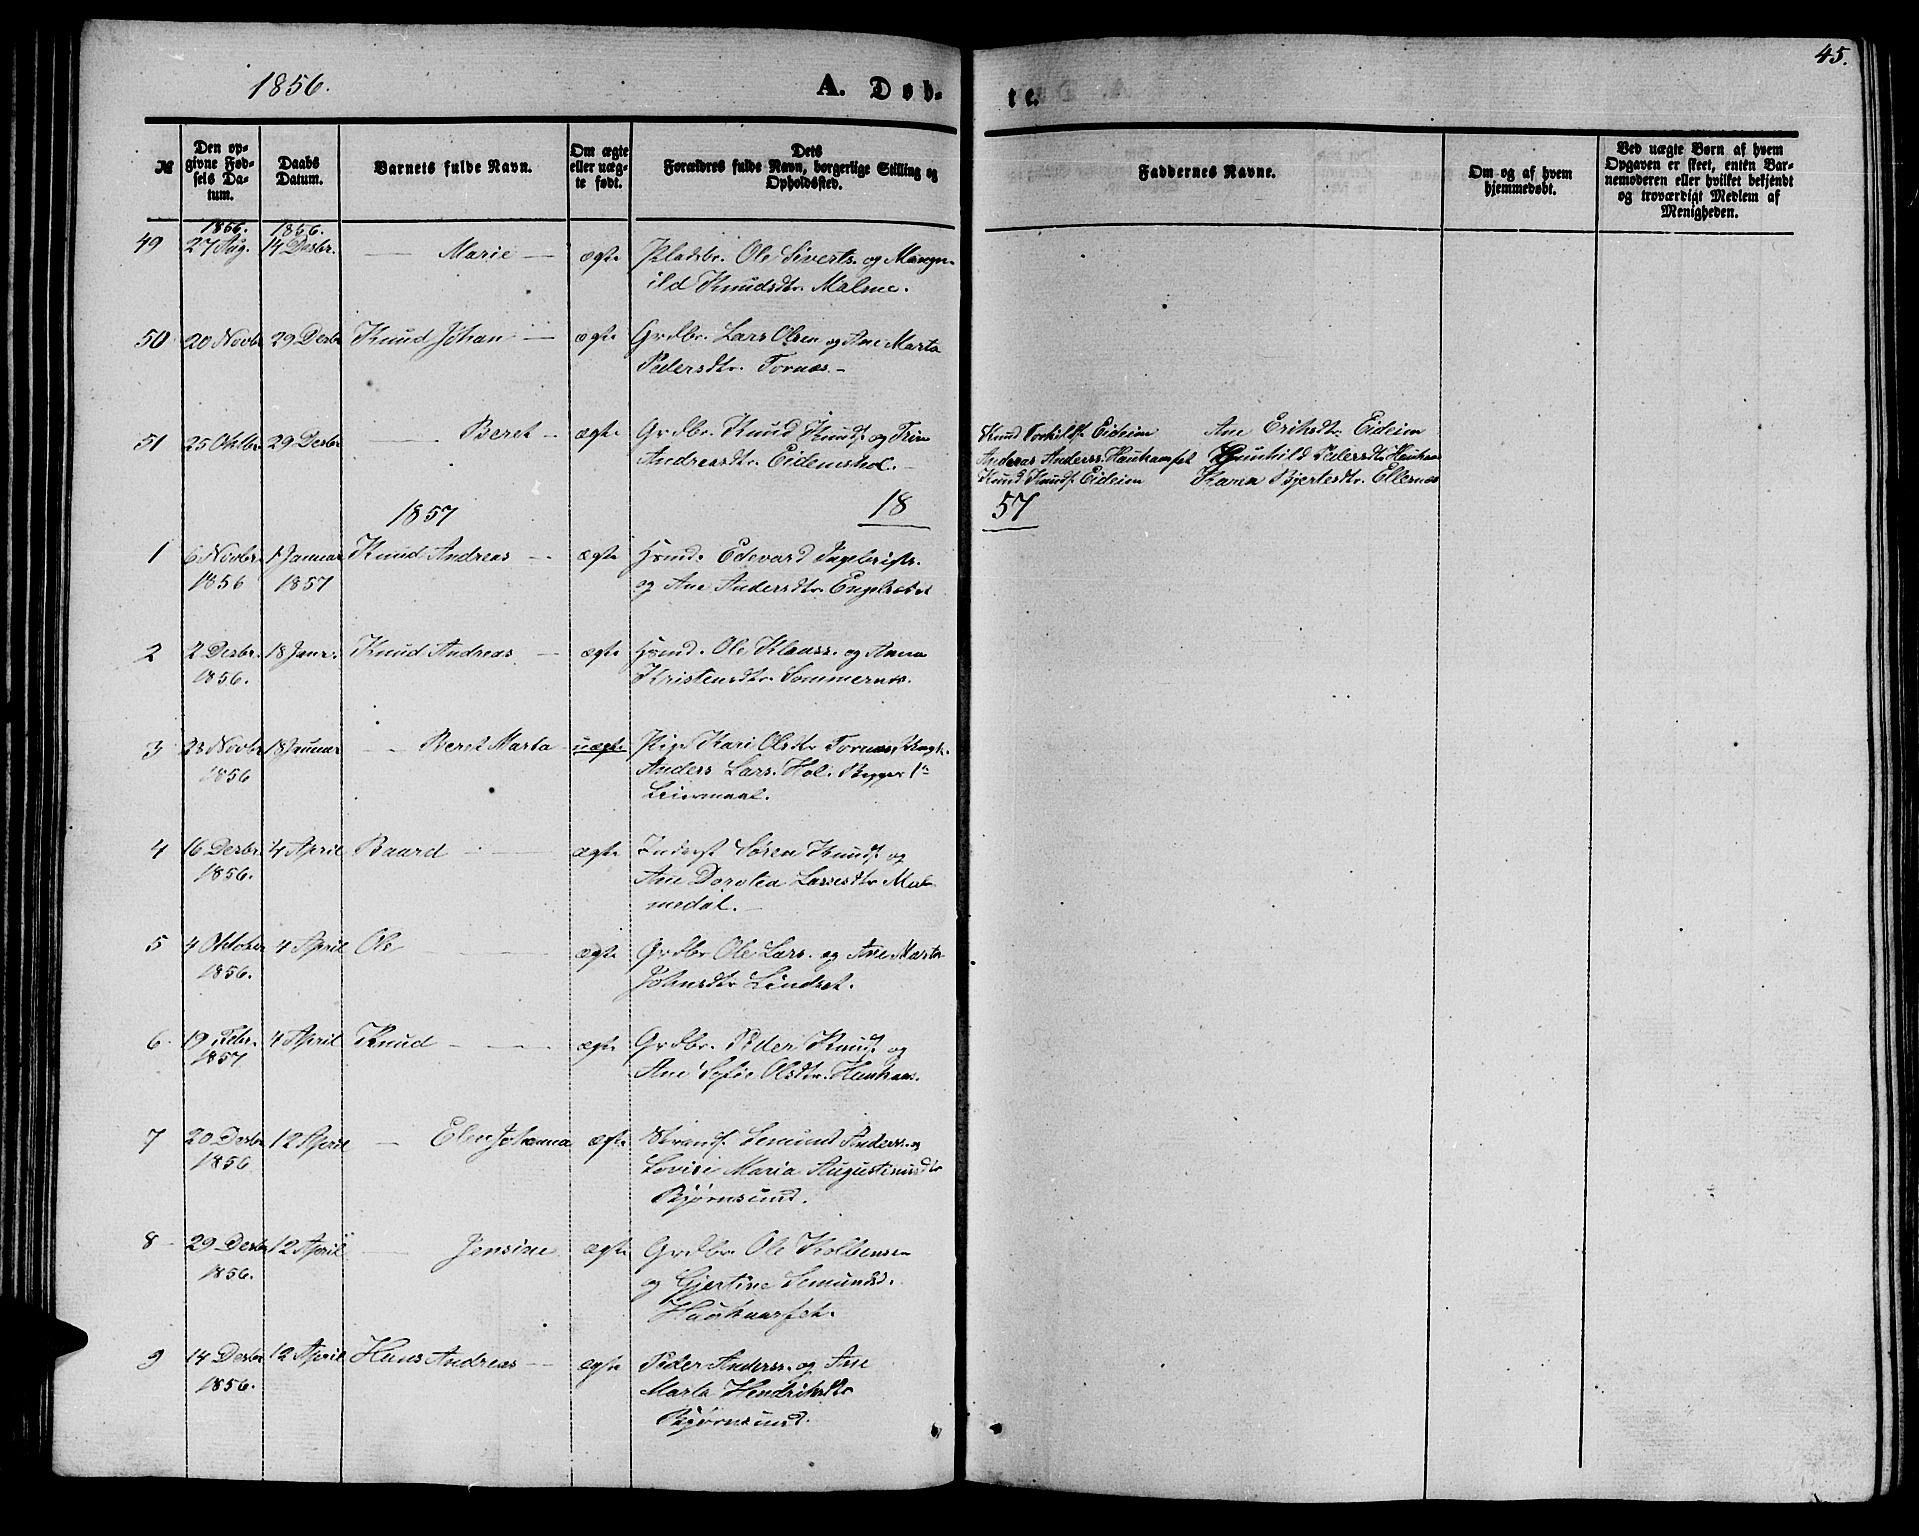 1856.
A. Døb-
te.
45.
№
Den op-
givne Fød-
sels Da-
tum.
Daabs
Datum.
Barnets fulde Navn.
Om ægte
eller uæg-
te født.
Dets
Forældres fulde Navn, borgerlige Stilling og
Opholdssted.
Faddernes Navne.
Om og af hvem
hjemmedøbt.
Ved uægte Børn af hvem
Opgaven er skeet, enten Bar-
nemoderen eller hvilket bekjendt
og troværdigt Medlem af
Menigheden.
1856. 1856.
49 27 Aug. 14 Desbr. Marie ægte Pladsbr. Ole Siverts. og Mangn-
ild Knudsdtr. Malme.
50 20 Novbr 29 Desbr Knud Johan ægte Grdbr. Lars Olsen og Ane Marta
Pedersdtr. Tornæs.
51 25 Oktbr 29 Desbr Beret ægte Grdbr. Knud Knuds. og Trin
Andreasdtr. Eidemshol.
Knud Torkilds. Eideim Ane Eriksdtr. Eideim
Andreas Anderss. Haukaasfet Gunhild Pedersdtr Haukaas
Knud Knuds. Eideim Karen Bjertesdtr. Ellernæs
1857 18 57
1 6 Novbr. 1 Januar Knud Andreas ægte Hsmd. Edevard Ingebrigts.
1856 1857 og Ane Andersdtr. Engelsæt
2 2 Desbr. 18 Janr. Knud Andreas ægte Hsmd. Ole Klauss. og Anna
1856. Kristensdtr. Sommernæs.
3 23 Novbr 18 Januar Beret Marta uægte Pige Kari Olsdtr Tornæs, Ungk.
1856 Anders Lars. Hol. Begges 1te
Leiermaal.
4 16 Desbr. 4 April Baard ægte Inderst Søren Knuds. og
1856. Ane Dorotea Lassesdtr Mal-
medal.
5 4 Oktober 4 April Ole ægte Grdbr Ole Lars. og Ane Marta
1856. Johnsdtr Lindset.
6 19 Febr. 4 April Knud ægte Grdbr. Peder Knuds. og
1857 Ane Sofie Olsdtr. Haukaas.
7 20 Desbr 12 April Elen Johanna ægte Strands. Semund Anders. og
1856 Lovise Maria Augustinusdtr
Bjørnsund.
8 29 Desbr 12 April Jensine ægte Grdbr. Ole Kolbensen
1856. og Gjertine Semundsd.
Haukaasfet.
9 14 Desbr 12 April Hans Andreas ægte Peder Anderss. og Ane
1856. Marta Hendriksdtr
Bjørnsund.